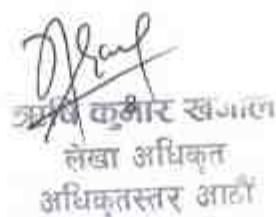 ऋषि कुमार खनाल
लेखा अधिकृत
अधिकृतस्तर आठौं